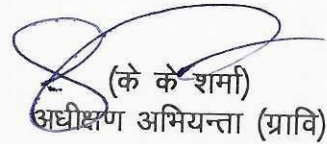 (के के शर्मा)
अधीक्षण अभियन्ता (ग्रावि)